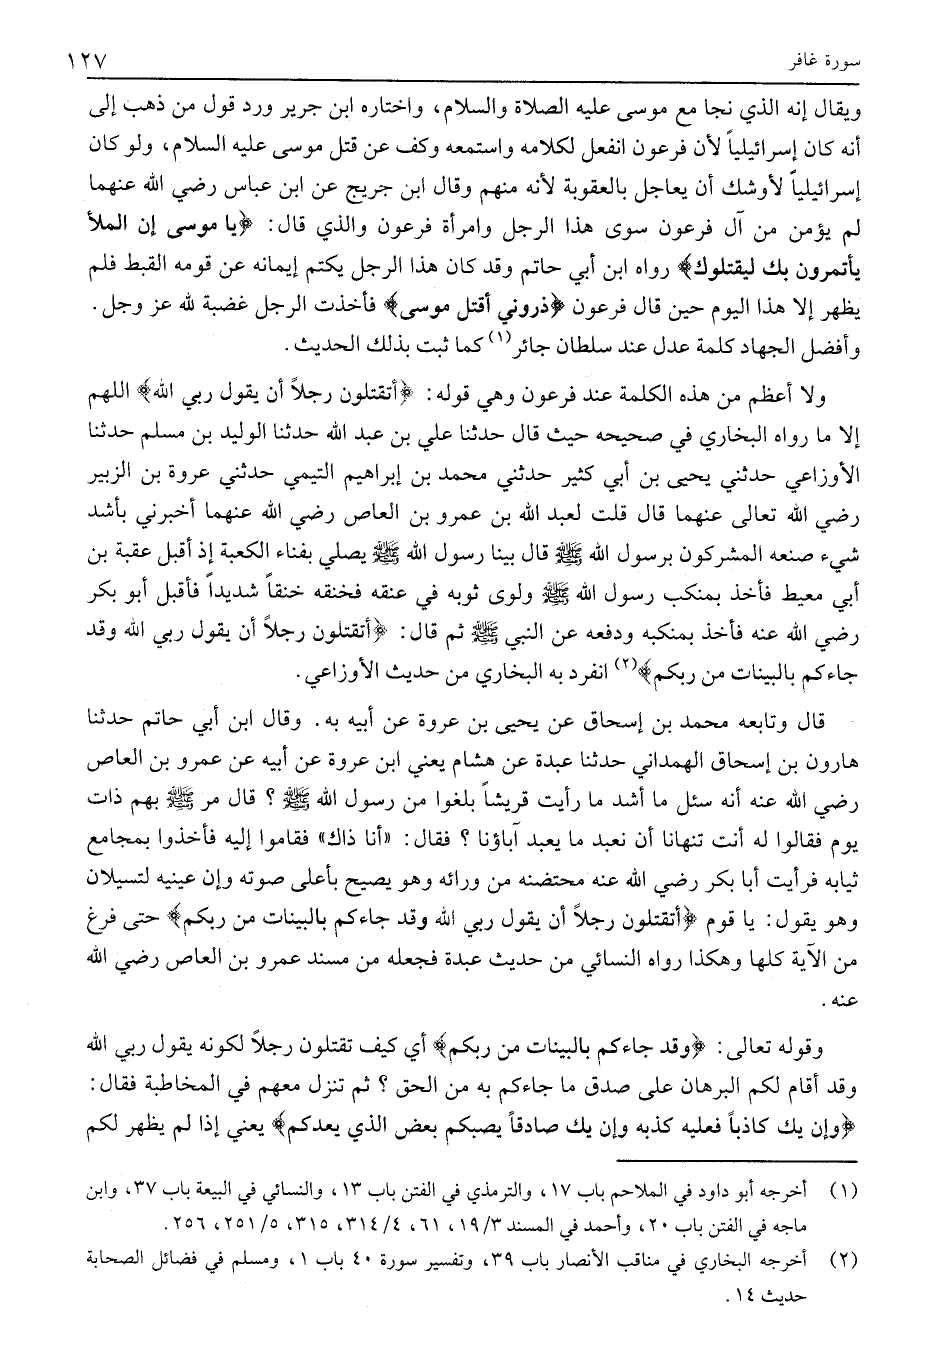 سورة غافر ١٢٧
ويقال إنه الذي نجا مع موسى عليه الصلاة والسلام، واختاره ابن جرير ورد قول من ذهب إلى
أنه كان إسرائيلياً لأن فرعون انفعل لكلامه واستمعه وكف عن قتل موسى عليه السلام، ولو كان
إسرائيلياً لأوشك أن يعاجل بالعقوبة لأنه منهم وقال ابن جريج عن ابن عباس رضي الله عنهما
لم يؤمن من آل فرعون سوى هذا الرجل وامرأة فرعون والذي قال: ﴿يا موسى إن الملأ
يأتمرون بك ليقتلوك﴾ رواه ابن أبي حاتم وقد كان هذا الرجل يكتم إيمانه عن قومه القبط فلم
يظهر إلا هذا اليوم حين قال فرعون ﴿ذروني أقتل موسى﴾ فأخذت الرجل غضبة لله عز وجل.
وأفضل الجهاد كلمة عدل عند سلطان جائر(١) كما ثبت بذلك الحديث.
ولا أعظم من هذه الكلمة عند فرعون وهي قوله: ﴿أتقتلون رجلاً أن يقول ربي الله﴾ اللهم
إلا ما رواه البخاري في صحيحه حيث قال حدثنا علي بن عبد الله حدثنا الوليد بن مسلم حدثنا
الأوزاعي حدثني يحيى بن أبي كثير حدثني محمد بن إبراهيم التيمي حدثني عروة بن الزبير
رضي الله تعالى عنهما قال قلت لعبد الله بن عمرو بن العاص رضي الله عنهما أخبرني بأشد
شيء صنعه المشركون برسول الله ﷺ قال بينا رسول الله ﷺ يصلي بفناء الكعبة إذ أقبل عقبة بن
أبي معيط فأخذ بمنكب رسول الله ﷺ ولوى ثوبه في عنقه فخنقه خنقاً شديداً فأقبل أبو بكر
رضي الله عنه فأخذ بمنكبه ودفعه عن النبي ﷺ ثم قال: ﴿أتقتلون رجلاً أن يقول ربي الله وقد
جاءكم بالبينات من ربكم﴾(٢) انفرد به البخاري من حديث الأوزاعي.
قال وتابعه محمد بن إسحاق عن يحيى بن عروة عن أبيه به. وقال ابن أبي حاتم حدثنا
هارون بن إسحاق الهمداني حدثنا عبدة عن هشام يعني ابن عروة عن أبيه عن عمرو بن العاص
رضي الله عنه أنه سئل ما أشد ما رأيت قريشاً بلغوا من رسول الله ﷺ ؟ قال مر ﷺ بهم ذات
يوم فقالوا له أنت تنهانا أن نعبد ما يعبد آباؤنا ؟ فقال: «أنا ذاك» فقاموا إليه فأخذوا بمجامع
ثيابه فرأيت أبا بكر رضي الله عنه محتضنه من ورائه وهو يصيح بأعلى صوته وإن عينيه لتسيلان
وهو يقول: يا قوم ﴿أتقتلون رجلاً أن يقول ربي الله وقد جاءكم بالبينات من ربكم﴾ حتى فرغ
من الآية كلها وهكذا رواه النسائي من حديث عبدة فجعله من مسند عمرو بن العاص رضي الله
عنه.
وقوله تعالى: ﴿وقد جاءكم بالبينات من ربكم﴾ أي كيف تقتلون رجلاً لكونه يقول ربي الله
وقد أقام لكم البرهان على صدق ما جاءكم به من الحق ؟ ثم تنزل معهم في المخاطبة فقال:
﴿وإن يك كاذباً فعليه كذبه وإن يك صادقاً يصبكم بعض الذي يعدكم﴾ يعني إذا لم يظهر لكم
(١) أخرجه أبو داود في الملاحم باب ١٧، والترمذي في الفتن باب ١٣، والنسائي في البيعة باب ٣٧، وابن
ماجه في الفتن باب ٢٠، وأحمد في المسند ١٩/٣، ٦١، ٣١٤/٤، ٣١٥، ٢٥١/٥، ٢٥٦.
(٢) أخرجه البخاري في مناقب الأنصار باب ٣٩، وتفسير سورة ٤٠ باب ١، ومسلم في فضائل الصحابة
حديث ١٤.